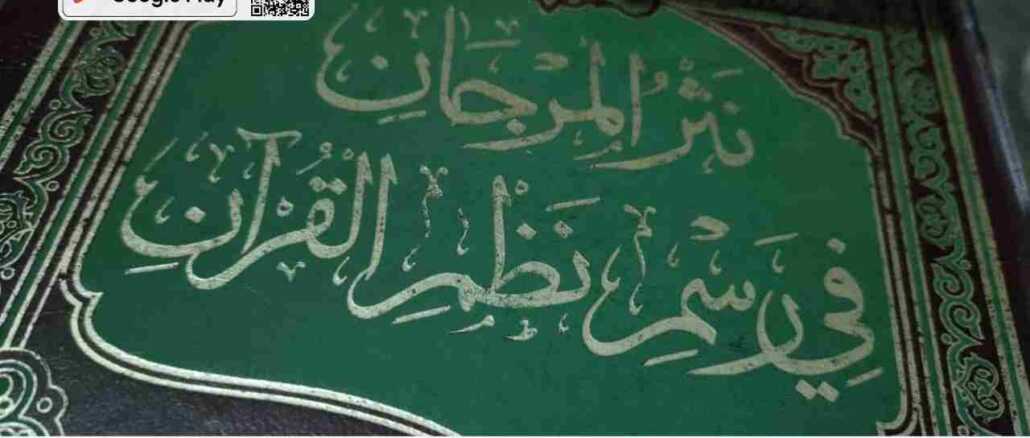 Google Play
نَثْرُ المَرْجَانِ
فِي رَسْمِ نَظْمِ القُرْآنِ